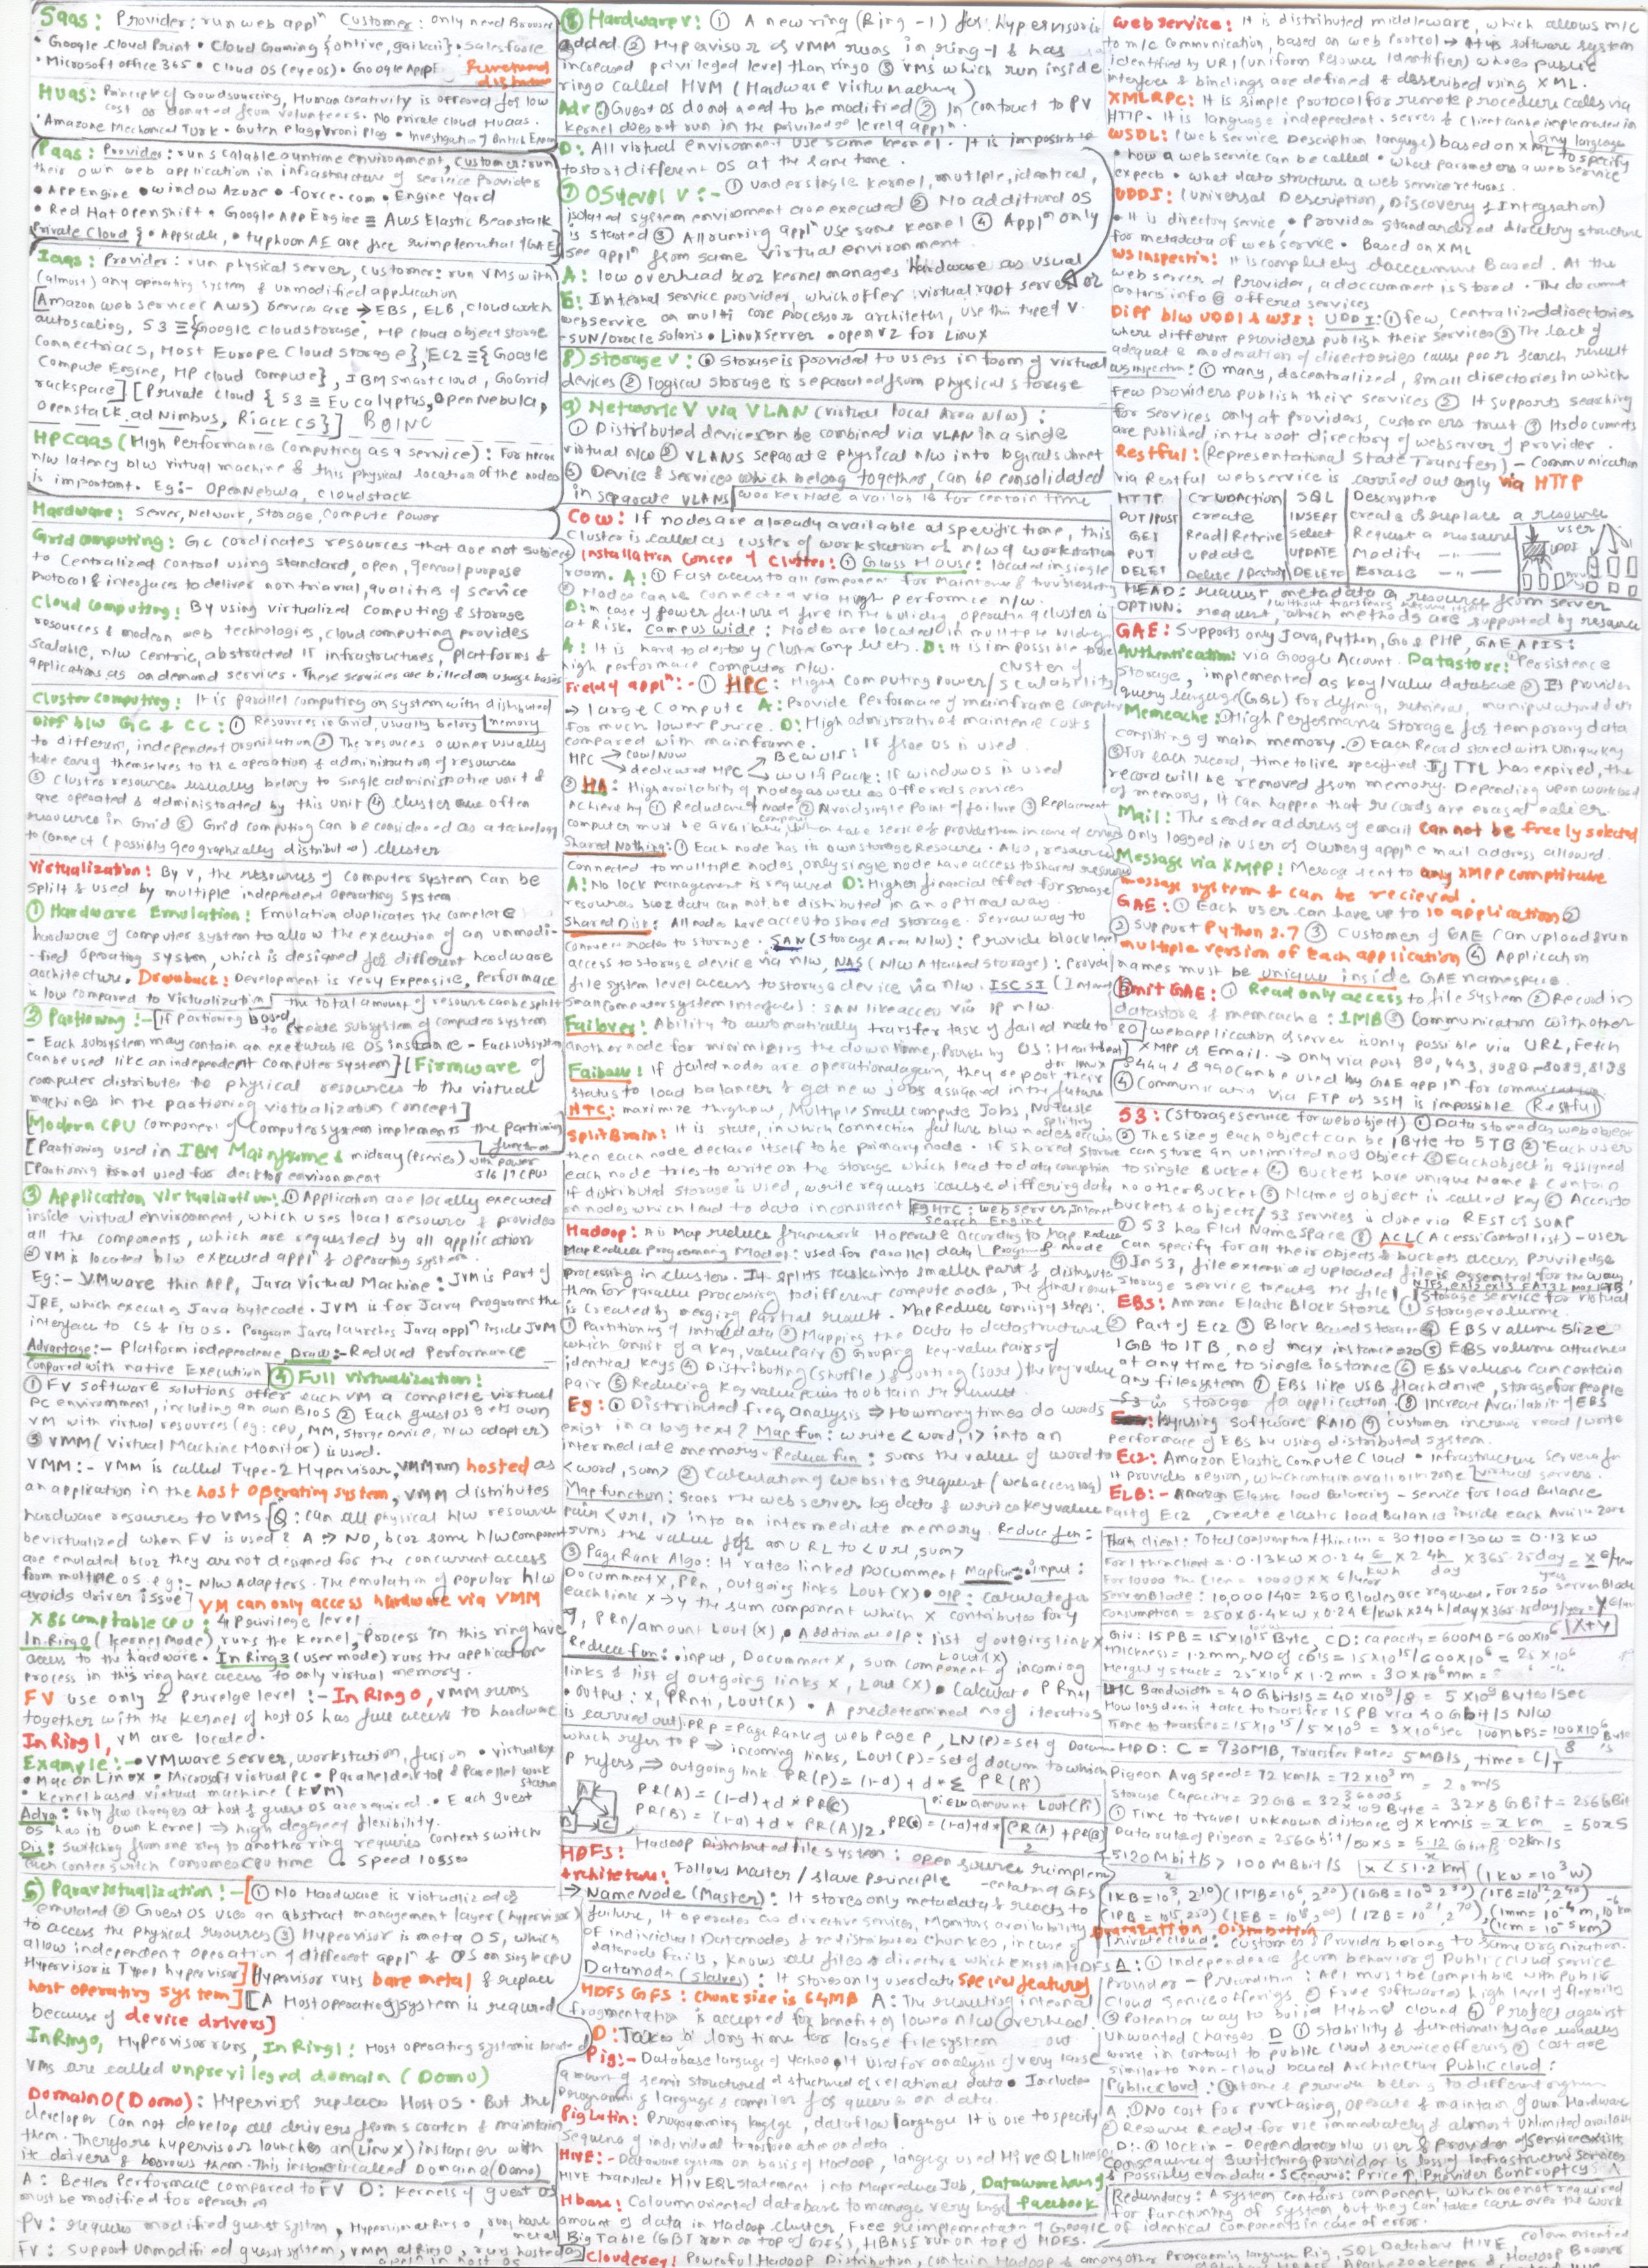 SaaS: Provider: run web appln Customer: only need Browser
• Google Cloud Print • Cloud Gaming {onlive, gaikai} • Salesforce
• Microsoft office 365 • Cloud OS (eyeos) • Google App
HUaaS: Principle of Crowdsourcing, Human creativity is offered for low
cost or donated from volunteers. No private cloud HuaaS.
• Amazone Mechanical Turk • Guten Plag, Vroni Plag • Investigation of British
PaaS: Provider: run scalable runtime environment, Customer: run
their own web application in infrastructure of service Provider
• APP Engine • window Azure • force.com • Engine Yard
• Red Hat Openshift • Google App Engine ≡ AWS Elastic Beanstalk
Private Cloud { • Appscale, • typhoon AE are free reimplementation of GAE
Iaas: Provider: run physical server, customer: run VMs with
(almost) any operating system & unmodified application
[Amazon web service (AWS) services are → EBS, ELB, cloud watch
autoscaling, S3 ≡ {Google cloud storage, HP cloud object storage
Connectriacs, Host Europe Cloud Storage}, EC2 ≡ {Google
Compute Engine, HP cloud compute}, IBM smart cloud, GoGrid
rackspace] [Private cloud { S3 ≡ Eucalyptus, OpenNebula,
Openstack, ad Nimbus, Riack CS}] BOINC
HPCaas (High Performance Computing as a service): For
n/w latency b/w virtual machine & this physical location of the nodes
is important. Eg:- OpenNebula, cloudstack
Hardware: Server, Network, Storage, Compute Power
Grid computing: Gc cordinates resources that are not subject
to Centralized control using standard, open, general purpose
Protocol & interfaces to deliver non trivial, qualities of service
Cloud computing: By using virtualized computing & storage
resources & modern web technologies, cloud computing provides
scalable, n/w centric, abstracted IT infrastructures, platforms &
applications as on demand services. These services are billed on usage basis
Cluster computing: It is parallel computing on system with distributed
memory
Diff b/w GC & CC: ① Resources in Grid, usually belong
to different, independent orgnisation ② The resources owner usually
take care themselves to the operation & administration of resources
③ cluster resources usually belong to single administrative unit &
are operated & administrated by this unit ④ cluster are often
resource in Grid ⑤ Grid computing can be considered as a technology
to connect (possibly geographically distributed) cluster
Virtualization: By V, the resources of Computer system can be
split & used by multiple independent Operating System.
① Hardware Emulation: Emulation duplicates the complete
hardware of computer system to allow the execution of an unmodi-
-fied operating system, which is designed for different hardware
architecture. Drawback: Development is very Expensive, Performace
is low compared to virtualization
② Partioning:- [If Partioning based, the total amount of resource can be split
to create subsystem of computer system
- Each subsystem may contain an executable OS instance - Each subsystem
can be used like an independent Computer system] [Firmware of
computer distributes the physical resources to the virtual
machines in the partioning virtualization concept]
[Modern CPU component of Computer system implements the partioning
[Partioning used in IBM Mainframe & midray (Pseries) with power
[Partionig is not used for desktop environment
③ Application Virtualization: ① Application are locally executed
inside virtual environment, which uses local resource & provides
all the components, which are requested by all application
② VM is located b/w executed appln & operating system.
Eg:- VMware thin APP, Java Virtual Machine: JVM is part of
JRE, which execute Java bytecode. JVM is for Java Programs the
interface to CS & its OS. Program Java launches Java appln inside JVM
Advantage:- Platform independence Draw:- Reduced Performance
Compared with native Execution
④ Full virtualization:
① FV software solutions offer each VM a complete virtual
PC environment, including an own BIOS ② Each guest OS gets own
VM with virtual resources (eg: CPU, MM, storge Device, n/w adapter)
③ VMM (Virtual Machine Monitor) is used.
VMM:- VMM is called Type-2 Hypervisor, VMM run hosted as
an application in the host operating system, VMM distributes
hardware resources to VMs [Q: can all physical H/w resource
be virtualized when FV is used? A => No, bcoz some h/w component
are emulated bcoz they are not designed for the concurrent access
from multiple OS. eg:- N/w Adapters. The emulation of popular h/w
avoids driver issue] VM can only access hardware via VMM
X86 comptable CPU: 4 privilege level.
In Ring0 (Kernel Mode), runs the Kernel, Process in this ring have
access to the hardware. In Ring 3 (user mode) runs the application
process in this ring have access to only virtual memory.
FV use only 2 privelge level:- In Ring 0, VMM runs
together with the kernel of host OS has full access to hardware
In Ring 1, VM are located.
Example:- • VMware server, workstation, fusion • virtualbox
• Mac on Linux • Microsoft virtual PC • Parallel desktop & Parallel work
• kernel based virtual machine (KVM) • Each guest
Adva: only few changes at host & guest OS are required.
OS has its own kernel => high degree of flexibility.
Dis: Switching from one ring to another ring requires context switch
each context switch consumes CPU time & speed losses
⑤ Paravirtualization:- [① No Hardware is virtualized or
emulated ② Guest OS uses an abstract management layer (hypervisor)
to access the physical resources ③ Hypervisor is meta OS, which
allow independent operation of different appln & OS on single CPU
Hypervisor is Type 1 hypervisor] [Hypervisor runs bare metal & replace
host operating system] [A Host operating system is requred
because of device drivers]
In Ring0, Hypervisor runs, In Ring1: Host operating system is
VMs are called unprevileged domain (DomU)
Domain0 (Dom0): Hypervisor replaces Host OS. But the
developer can not develop all drivers from scratch & maintain
them. Therefore hypervisor launches an (Linux) instances with
it drivers & borrows them. This instance is called Domain 0 (Dom0)
A: Better Performace compared to FV D: Kernels of guest OS
must be modified for operation
PV: requres modified guest system, Hypervisor at Ring 0, runs bare
metal
FV: support unmodified guest system, VMM at Ring 0, runs hosted
⑥ Hardware V: ① A new ring (Ring -1) for hypervisor is
added ② Hypervisor or VMM runs in ring -1 & has
increased privileged level than ring 0 ③ VMs which run inside
ring 0 called HVM (Hardware virtu Machine)
Adv: ① Guest OS do not need to be modified ② In contract to PV
kernel does not run in the privilege level of appln.
D: All virtual enviroment use same kernel. It is impossible
to start different OS at the same time.
⑦ OS level V:- ① Under single kernel, mutiple, identical,
isolated system enviroment are executed ② No additional OS
is started ③ All running appln use same kernel ④ Appln only
see appln from same virtual environment
A: low overhead bcoz kernel manages hardware as usual
E: Internet service provider, which offer virtual root server or
webservice on multi core processor architetur, use this type of V.
- SUN/oracle solaris • Linux Server • open VZ for Linux
8) Storage V: ① Storage is provided to users in form of virtual
devices ② logical storage is separated from physical storage
9) Network V via VLAN (virtual local Area N/w):
① Distributed devices can be combined via VLAN in a single
virtual n/w ② VLANS separate physical n/w into logical subnet
③ Device & services which belong together, can be consolidated
in separate VLANS | Worker Node available for certain time
COW: If nodes are already available at specific time, this
cluster is called as cluster of workstation or n/w of workstation
Installation Concep of Cluster: ① Glass House: located in single
room. A: ① Fast access to all component for Maintenance & trubleshooting
② Nodes can be connected via High Performce n/w.
D: In case of power failure or fire in the building, operation of cluster is
at Risk. Campus wide: Nodes are located in multiple buildings
A: It is hard to destroy cluster completely. D: It is impossible to use
high performace computer n/w.
Field of appln:- ① HPC: High Computing Power / scalability
→ large Compute A: Provide Performace of mainframe computer
for much lower Price. D: High admistrative & maintence costs
compared with mainframe. If free OS is used
HPC COW/NOW Beowulf
dedicated HPC Wulfpack: If windows is used
② HA: High availability of nodes as well as offered services
Achieve by ① Redundant node ② Avoid single Point of failure ③ Replacement
Shared Nothing: ① Each node has its own storage Resource. Also, resources
Connected to multiple nodes, only single node have access to shared resource
A: No lock management is required D: Higher financial effort for storage
resources bcoz data can not be distributed in an optimal way.
Shared Dist: All nodes have access to shared storage. Several way to
connect nodes to storage. SAN (Storage Area N/w): Provide block level
access to storage device via n/w, NAS (N/w Attached Storage): Provide
file system level access to storage device via n/w. ISCSI (Internet
small computer system Interface): SAN like access via IP n/w.
Failover: Ability to automatically transfer task of failed node to
another node for minimizing the downtime, Proven by OS: Heartbeat
for linux
Failback: If failed nodes are operational again, they report their
status to load balancer & get new jobs assigned in the future
HTC: maximize throghput, Multiple small compute Jobs, No task
splitting
SplitBrain: It is state, in which connection failure b/w nodes occurs
then each node declare itself to be primary node. If shared storage
each node tries to write on the storage which lead to data corruption
If distributed storage is used, write requests cause differing data
on nodes which lead to data inconsistent | Eg HTC: web server, Internet
Search Engine
Hadoop: It is Map reduce framework. Hoperate According to Map Reduce
Map Reduce Programming Model: used for parallel data
processing in cluster. It splits tasks into smaller part & distribute
them for parallel processing to different compute node, The final result
is created by merging partial result. Map Reduce consist of steps:
① Partitioning of initial data ② Mapping the Data to datastructure
which consist of a Key, value Pair ③ Grouping key-value pairs of
identical keys ④ Distributing (shuffle) & sorting (sort) the key value
pair ⑤ Reducing key value pairs to obtain the result
Eg: ① Distributed freq analysis => How many times do words
exist in a long text? Map fun: write <word, 1> into an
intermediate memory. Reduce fun: sums the value of word to
<word, sum> ② Calculation of website request (web access log)
Map function: scans the web server log data & writes key value
Pair <url, 1> into an intermediate memory. Reduce fun:
sums the value for an URL to <url, sum>
③ PageRank Algo: It rates linked Document Map fun: input:
Document X, PRn, outgoing links Lout(X) • o/p: calculate for
each link X→Y the sum component which X contributes for Y
Y, PRn/amount Lout(X), • Additional o/p: list of outgoing links
Lout(X)
Reduce fun: • input, Document X, sum component of incoming
links & list of outgoing links X, Lout(X) • calculate PRn+1
• output: X, PRn+1, Lout(X) • A predetermined no of iterations
is carried out. PR P = Page Rank of web Page P, LN(P) = set of Document
which refer to P => incoming links, Lout(P) = set of docum to which
P refers, => outgoing link PR(P) = (1-d) + d * Σ PR(Pi)
Pi∈LN amount Lout(Pi)
A B C
PR(A) = (1-d) + d * PR(C)
PR(B) = (1-d) + d * PR(A)/2, PR(C) = (1-d) + d * [PR(A)/2 + PR(B)]
HDFS: Hadoop Distributed file system: open source reimplem
-entation of GFS
Architeture: Follows Master / slave Principle
→ NameNode (Master): It stores only metadata & reacts to
failure, It operates as directive services, Monitors availability
of individual Datanodes & redistributes Chunkes, in case of
datanode fails, knows all files & directries which exist in HDFS
Datanode (slaves): It stores only userdata Special features
HDFS GFS: Chunk size is 64MB A: The resulting internal
fragmentation is accepted for benefit of lower n/w overhead.
D: Takes a long time for large filesystem
Pig:- Database language of Yahoo, It used for analysis of very large
amount of semi structured or stuctured or relational data • Includes
Programing language & compiler for queries on data.
PigLatin: Programming language, dataflow language It is use to specify
sequence of individual transformation on data
HIVE:- Dataware system on basis of Hadoop, language used HiveQL
HIVE translate HIVEQL statement into Mapreduce Job, Datawarehousing
Facebook
Hbase: Coloumn oriented database to manage very large
amount of data in Hadoop cluster, Free reimplementation of Google
BigTable (GBT run on top of GFS), HBASE run on top of HDFS.
Cloudera: Powerful Hadoop Distribution, contain Hadoop & among other Programing language Pig, SQL Database HIVE,
Web service: It is distributed middleware, which allows m/c
to m/c communication, based on web Protcol → It is software system
identified by URI (Uniform Resource Identifier) whoes public
interfaces & bindings are defined & described using XML.
XMLRPC: It is simple Protocol for remote Procedure calls via
HTTP. It is language independent. server & Client can be implemented in
any language
WSDL: (Web Service Description language) based on XML to specify
• how a webservice can be called • what parameters a web service
expects • what data structure a web service returns
UDDI: (Universal Description, Discovery & Integration)
• It is directory service • Provides standardized directory structure
for metadata of webservice • Based on XML
WS Inspection: It is completely doccument Based. At the
web server of Provider, a doccument is stored. The document
contains info @ offered services
Diff b/w UDDI & WSI: UDDI: ① few, centralized directories
where different providers publish their services ② The lack of
adequate moderation of directories cause poor search result
WSInspection: ① many, decentralized, small directories in which
few Providers publish their services ② It supports searching
for services only at Providers, customers trust ③ Its documents
are published in the root directory of webserver of provider.
Restful: (Representational State Transfer) - Communication
via Restful webservice is carried out only via HTTP
HTTP | CRUD Action | SQL | Description
PUT/POST | Create | INSERT | Create or replace a resource
GET | Read/Retrive | select | Request a resource
PUT | update | UPDATE | Modify —"—
DELET | Delete/Destroy | DELETE | Erase —"—
user
UDDI
HEAD: request metadata a resource from server
OPTION: request, which methods are supported by resource
GAE: Supports only Java, Python, Go & PHP, GAE APIS:
Authentication: via Google Account. Datastore: ① Persistence
Storage, implemented as Key/value database ② It provides
query language (GQL) for defining, retrieval, manipulation of data
Memcache: ① High Performance Storage for temporary data
consisting of main memory. ② Each Record stored with unique key
③ For each record, time to live specified. If TTL has expired, the
record will be removed from memory. Depending upon workload
of memory, it can happen that records are erased ealier.
Mail: The sender address of email can not be freely selected
Only logged in user or owner of appln e mail address allowed.
Message via XMPP: Message sent to any XMPP comptitable
message system & can be recieved.
GAE: ① Each user can have up to 10 application
② Support Python 2.7 ③ Customer of GAE can upload & run
multiple version of each application ④ Application
names must be unique inside GAE namespace.
Limit GAE: ① Read only access to file system ② Record in
datastore & memcache: 1MB ③ Communication with other
web application or server is only possible via URL, Fetch
XMPP or Email. → Only via port 80, 443, 8080-8089, 8188
8444 & 8990 can be used by GAE appln for communication
④ Communication via FTP or SSH is impossible (Restful)
S3: (Storage service for webobject) ① Data stored as webobject
② The size of each object can be 1Byte to 5TB ② Each user
can store an unlimited no of object ③ Each object is assigned
to single Bucket ④ Buckets have unique Name & contain
no other Bucket ⑤ Name of object is called key ⑥ Access to
buckets & objects / S3 services is done via REST or SOAP
⑦ S3 has Flat Name Space ⑧ ACL (Access Control list) - user
can specify for all their objects & buckets access priviledge
⑨ In S3, file extension of uploaded file is essential for the way,
storage service treats the file
EBS: Amzone Elastic Block Store ① Storage service for virtual
storage volume.
② Part of EC2 ③ Block Based Storage ④ EBS volume size
1GB to 1TB, no of max instance 20 ⑤ EBS volume attached
at any time to single instance ⑥ EBS volume can contain
any filesystem ⑦ EBS like USB flash drive, storage for people
S3 is storage for application. ⑧ Increase Availabilt of EBS
by using Software RAID ⑨ customer increase read/write
performace of EBS by using distributed system.
EC2: Amazon Elastic Compute Cloud • Infrastructure service for
virtual servers.
It provides region, which contain availability zone
ELB:- Amazon Elastic load Balancing - Service for load Balance
Part of EC2, Create elastic load Balancer inside each Avail zone
Thick client: Total consumption/thin client = 30+100 = 130W = 0.13 kw
For 1 thin client = 0.13kw x 0.24 €/kwh x 24h/day x 365.25 day/year = x €/year
For 10000 thin clien = 10000 x x €/year
ServerBlade: 10,000/40 = 250 Blades are required. For 250 server Blade
Consumption = 250 x 0.4 kw x 0.24 €/kwh x 24h/day x 365.25 day/year = y €/year
x+y
Giv: 15PB = 15x10^15 Byte, CD: capacity = 600MB = 600x10^6
thickness = 1.2mm, NO of CD is = 15x10^15/600x10^6 = 25x10^6
Height of stack = 25x10^6 x 1.2 mm = 30x10^6 mm =
LHC Bandwidth = 40 Gbits/s = 40x10^9/8 = 5x10^9 Bytes/sec
How long does it take to transfer 15 PB via 40 Gbit/s N/w
Time to transfer = 15x10^15/5x10^9 = 3x10^6 sec 100 Mbps = 100x10^6/8 Byte/s
HDD: C = 730MB, Transfer Rate = 5MB/s, time = C/T
Pigeon Avg speed = 72 km/h = 72x10^3 m/3600s = 20 m/s
Storage Capacity = 32GB = 32x10^9 Byte = 32x8 GBit = 256GBit
① Time to travel unknown distance of x kms/s = x km/.02km/s = 50xs
Data rate of Pigeon = 256Gbit/50xs = 5.12/x Gbit/s
5120 Mbit/s/x > 100 MBbit/s x < 51.2 km (1kw = 10^3 w)
(1KB = 10^3, 2^10) (1MB = 10^6, 2^20) (1GB = 10^9, 2^30) (1TB = 10^12, 2^40)
(1PB = 10^15, 2^50) (1EB = 10^18, 2^60) (1ZB = 10^21, 2^70), (1mm = 10^-6 km)
(1cm = 10^-5 km)
Private cloud: Customer & Provider belong to same orgnization.
A: ① Independence from behavior of Public cloud service
Provider - Precondition: API must be comptible with Public
Cloud Service offerings ② Free software is high level of flexibility
③ Potential way to build Hybrid cloud ④ Project against
Unwanted Changes D ① Stability & functionality are usually
worse in contrast to public cloud service offerings ② Cost are
similar to non-cloud based Architecture Public cloud:
Public Cloud: ① Customer & provider belong to different orgnistn
A: ① No cost for purchasing, operate & maintain of own Hardware
② Resource Ready for use immediately & almost unlimited available
D:- ① lock in - Dependancy b/w user & Provider of Service exist
Consequence of switching Provider is loss of Infrastructure services
& possibly even data • Scenario: Price ↑, Provider Bankruptcy.
Redundacy: A system contains component, which are not required
for functining of system but they can take care over the work
of identical components in case of error.